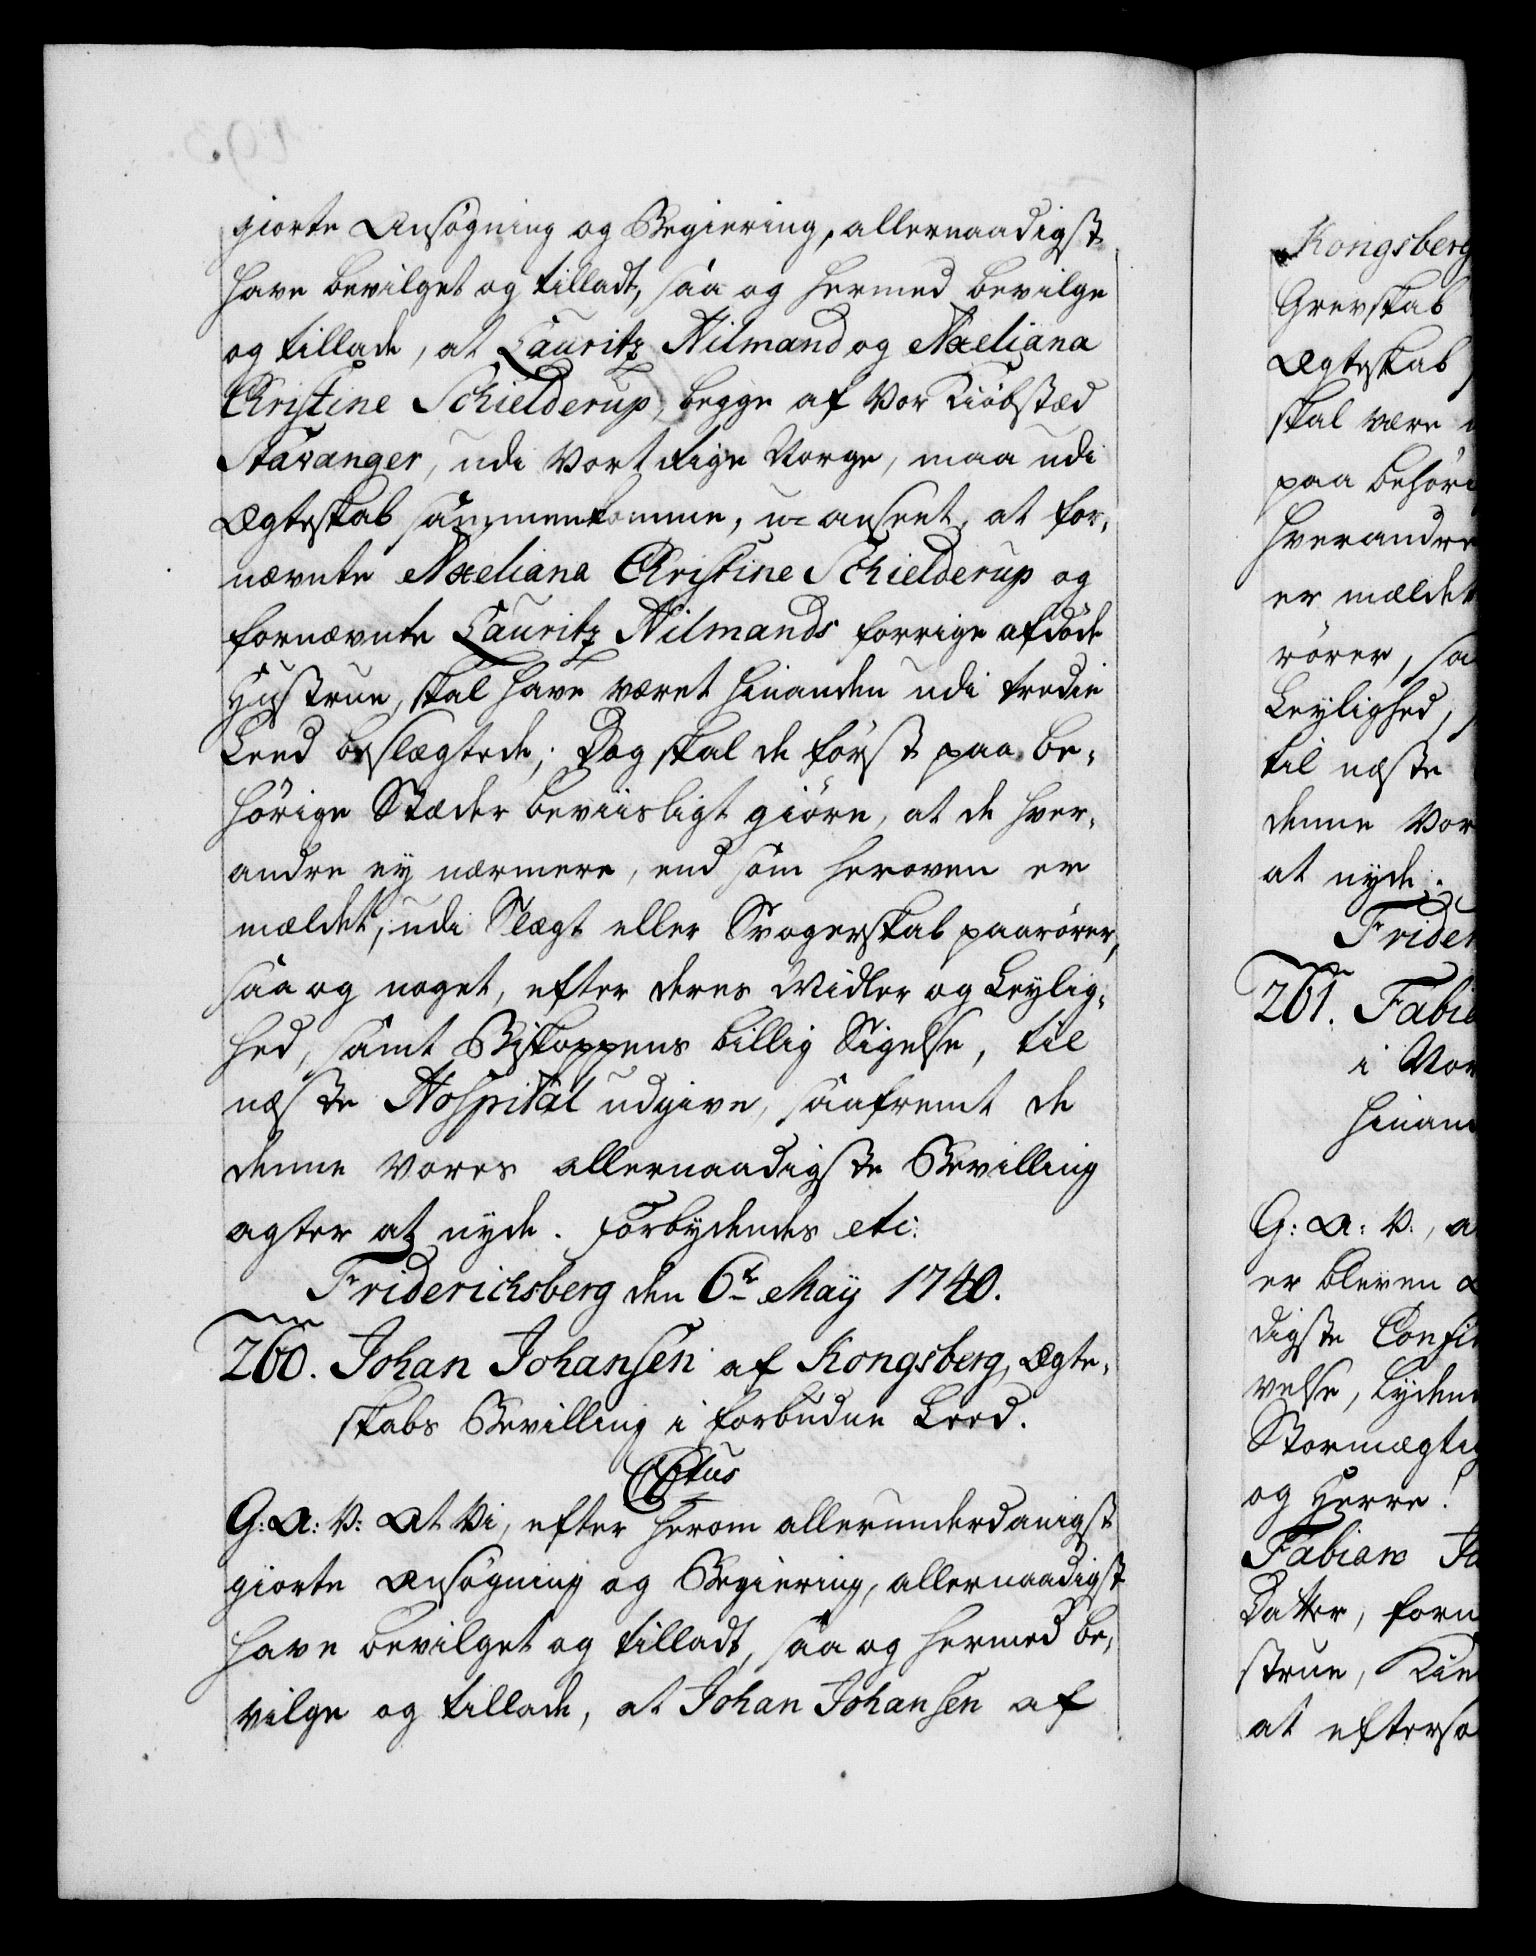 giorte Ansøgning og Begiering, allernaadigst
have bevilget og tilladt, saa og hermed bevilge
og tillade, at Lauritz Hilmand og Axeliana
Christine Schielderup, begge af Vor Kiøbstæd
Stavanger, udi Vort Rige Norge, maa udi
Ægteskab sammenkomme, u-anseet, at for-
nævnte Axeliana Christine Schielderup og
fornævnte Lauritz Hilmands forrige afdøde
Hustrue, skal have været hinanden udi tredie
Leed beslægtede; Dog skal de først paa be-
hørige Stæder beviisligt giøre, at de hver-
andre ey nærmere, end som heroven er
mældet, udi Slægt eller Svogerskab paarører,
saa og noget, efter deres Midler og Leylig-
hed, samt Biskoppens billig Sigelse, til
næste Hospital udgive, saafremt de
denne Vores allernaadigste Bevilling
agter at nyde. Forbydendes etc:
Friderichsberg den 6te May 1740.
260. Johan Johansen af Kongsberg, Ægte-
skabs Bevilling i forbudne Leed.
G: A: V: At Vi, efter herom allerunderdanigst
giorte Ansøgning og Begiering, allernaadigst
have bevilget og tilladt, saa og hermed be-
vilge og tillade, at Johan Johansen af
Kongsberg
Grevskab
Ægteskab
skal være
paa behøri
hverandre
er mældet
rører, sa
Leylighed,
til næste
denne Vor
at nyde.
Frider
261. Fabia
i Vor
hinan
G: A: V:, a
er bleven
digste Confir
velse, lydend
Stormægtig
og Herre!
Fabian Jo
Datter, forn
strue, Kie
at efterso